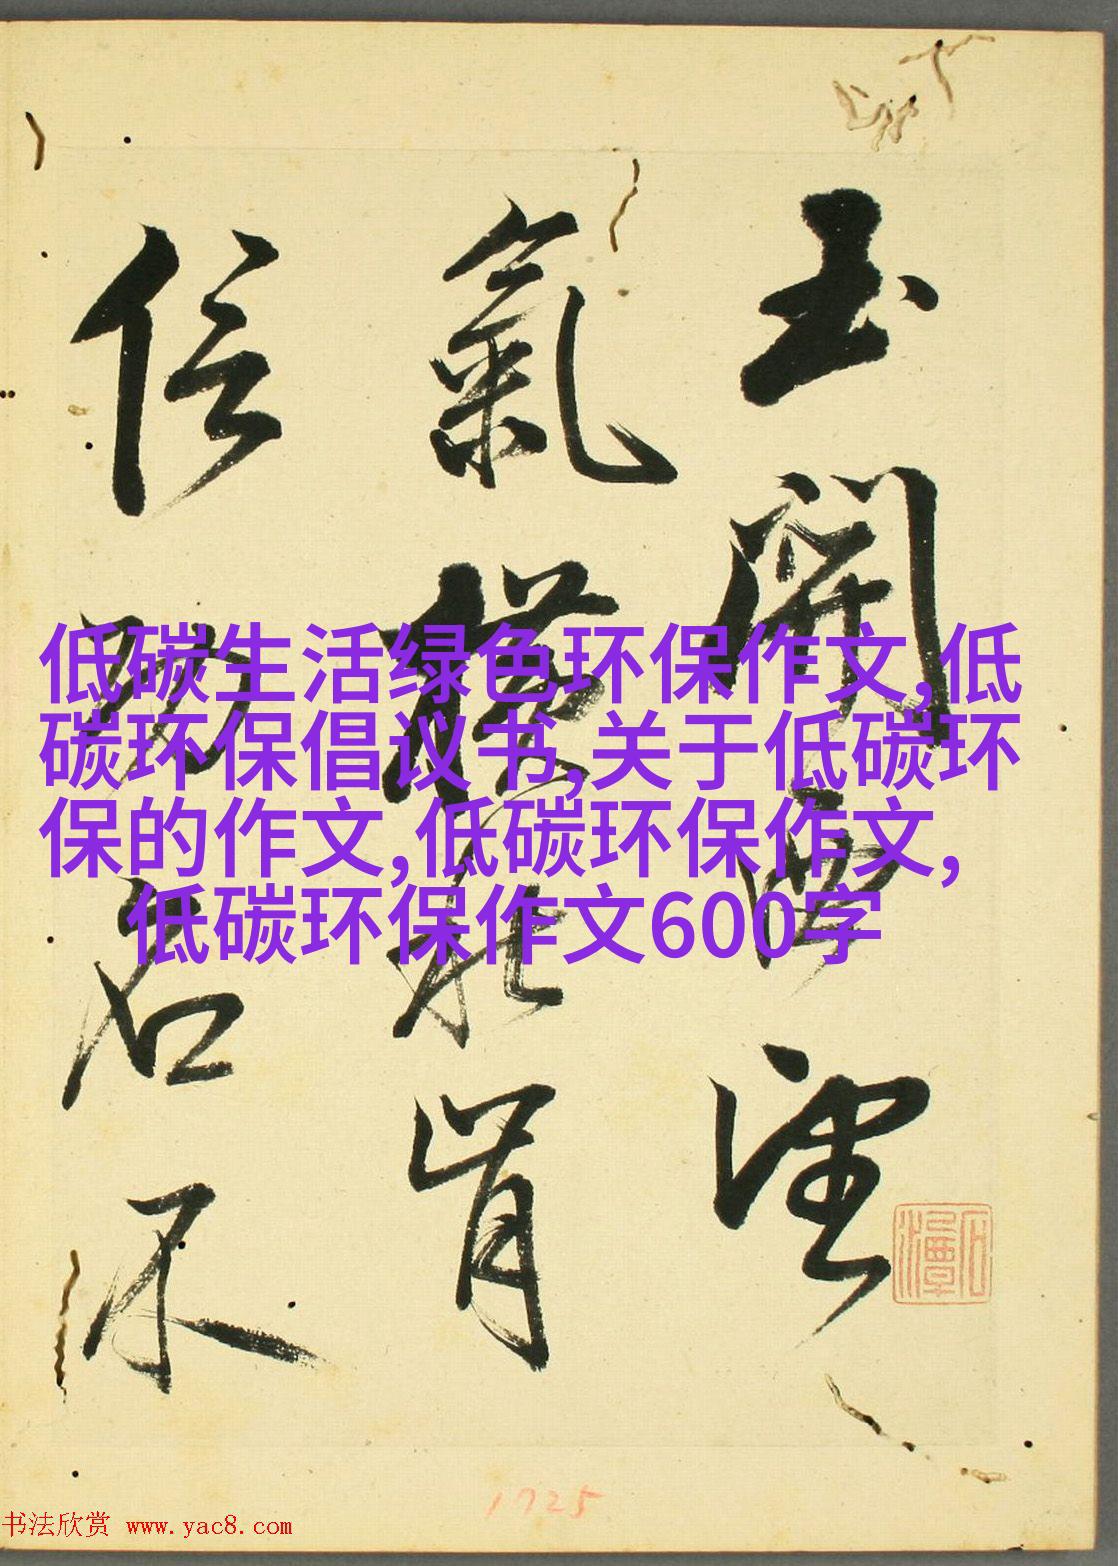 玉開
氣橫
信
名不
低碳生活绿色环保作文,低
碳环保倡议书,关于低碳环
保的作文,低碳环保作文,
低碳环保作文600字
1725
书法欣赏 www.yac8.com